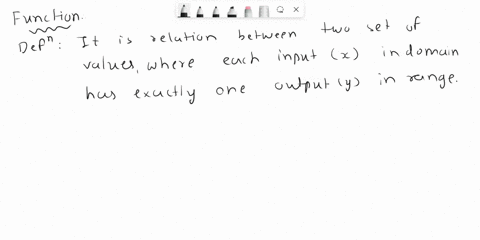 Function.
Defⁿ: It is relation between two set of
values, where each input (x) in domain
has exactly one output (y) in range.